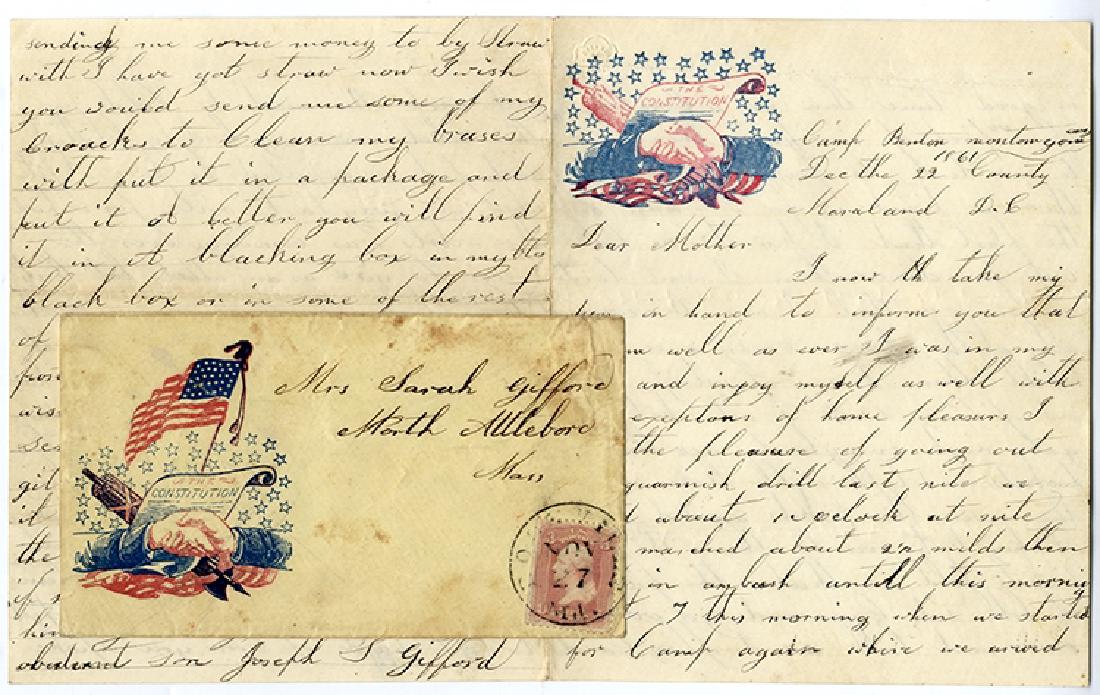 sending me some money to by Straw
with I have got straw now I wish
you would send me some of my
to Clean my brases
with put it in a package and
put it A better you will find
it in A blacking box in my
black box or in some of the rest
of
wis
sen
git
it
the
if
him
obedient son Joseph S Gifford
THE
CONSTITUTION
Camp Benton
1861
Dec the 22 County
Maraland D.C
Dear Mother
I now th take my
in hand to inform you that
well as ever I was in my
and injoy myself as well with
exeptons of home pleasurs I
the pleasure of going out
drill last nite we
about 1 oclock at nite
marched about 2½ milds then
in ambush untill this morning
7 this morning when we started
for Camp again where we arived
Mrs Sarah Gifford
North Attleboro
Mass
THE
CONSTITUTION
NOV
27
MD.